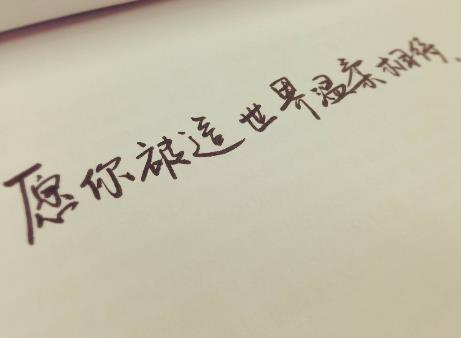 愿你被這世界温柔相待.